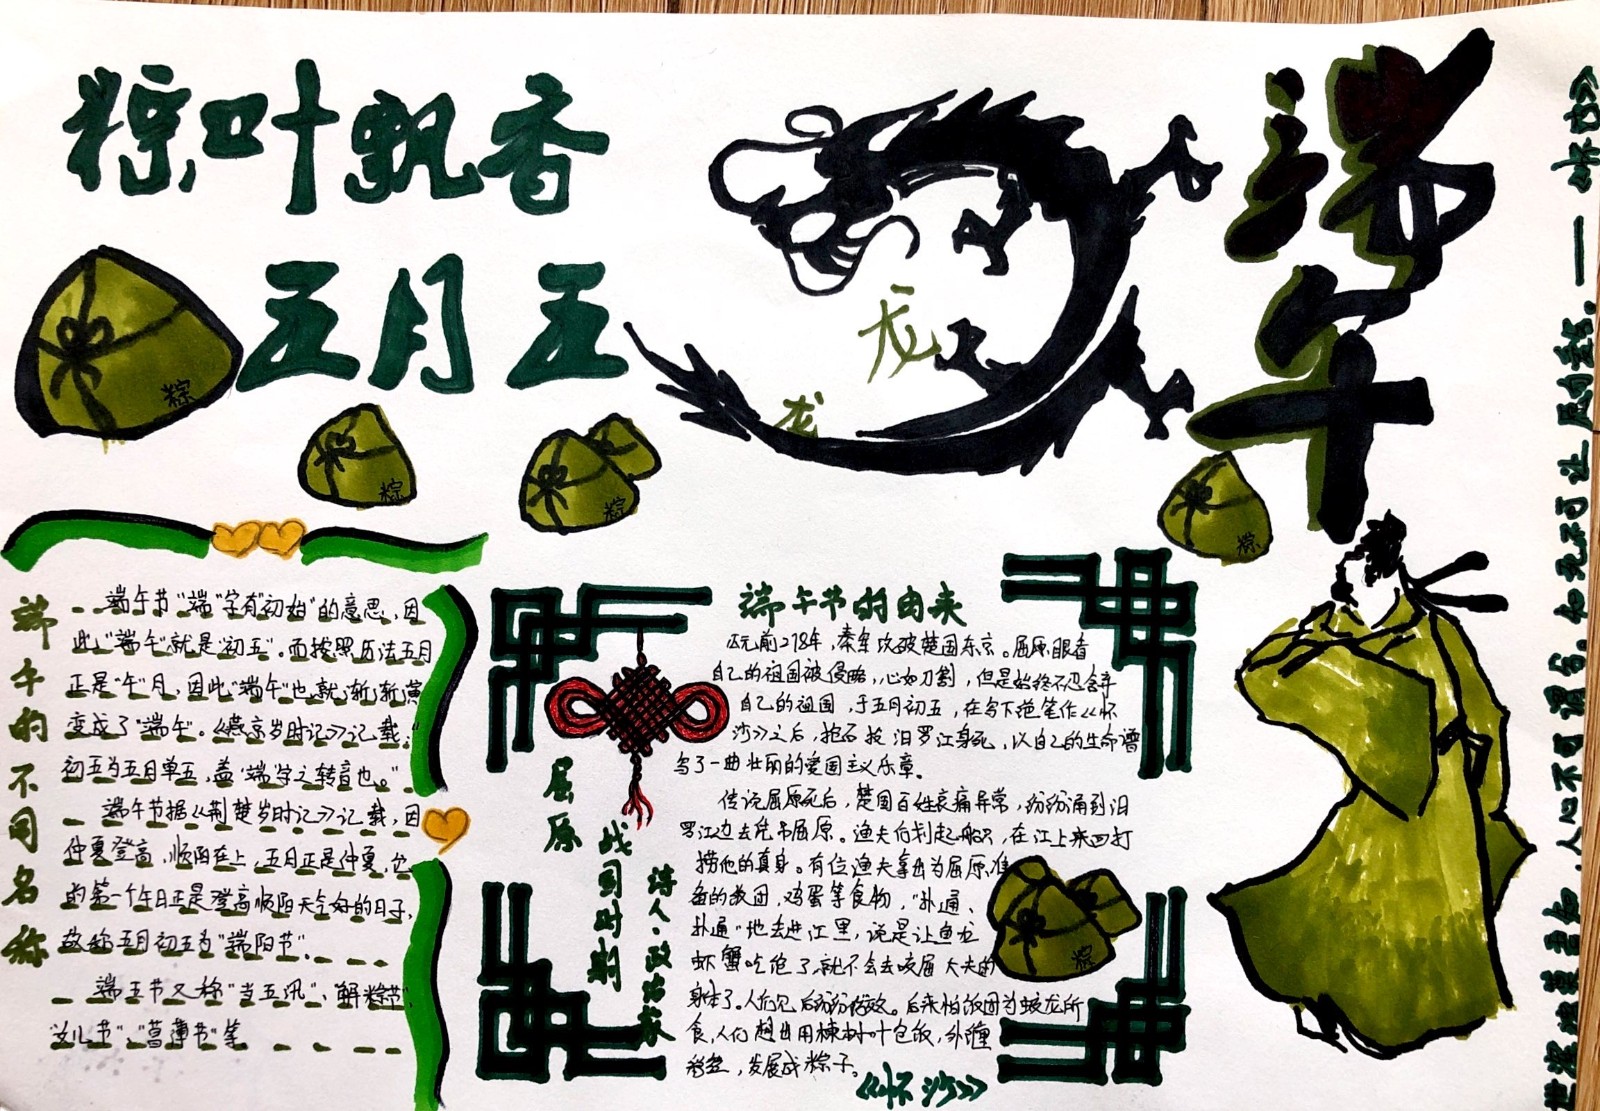 粽叶飘香
五月五
端午
龙
龙
粽
粽
粽
粽
粽
端午的不同名称
端午节“端”字有“初始”的意思,因
此“端午”就是“初五”。而按照历法五月
正是“午”月,因此“端午”也就渐渐演
变成了“端午”。《燕京岁时记》记载:“
初五为五月单五,盖“端”字之转音也。”
端午节据《荆楚岁时记》记载,因
仲夏登高,顺阳在上,五月正是仲夏,它
的第一个午日正是登高顺阳天气好的日子,
故称五月初五为“端阳节”.
端午节又称“当五汛”、“解粽节”、
“女儿节”、“菖蒲节”等
屈原
战国时期
诗人·政治家
端午节的由来
公元前278年,秦军攻破楚国东京。屈原眼看
自己的祖国被侵略,心如刀割,但是始终不忍舍弃
自己的祖国,于五月初五,在写下绝笔作《怀
沙》之后,抱石投汨罗江身死,以自己的生命谱
写了一曲壮丽的爱国主义乐章。
传说屈原死后,楚国百姓哀痛异常,纷纷涌到汨
罗江边去凭吊屈原。渔夫们划起船只,在江上来回打
捞他的真身。有位渔夫拿出为屈原准
备的饭团,鸡蛋等食物,“扑通、
扑通”地丢进江里,说是让鱼龙
虾蟹吃饱了,就不会去咬屈大夫的
身体了。人们见后纷纷仿效。后来怕饭团为蛟龙所
食,人们想出用楝树叶包饭,外缠
彩丝,发展成粽子。
《怀沙》
世溷浊莫吾知,人心不可谓兮。知死不可让,愿勿爱兮。——《怀沙》